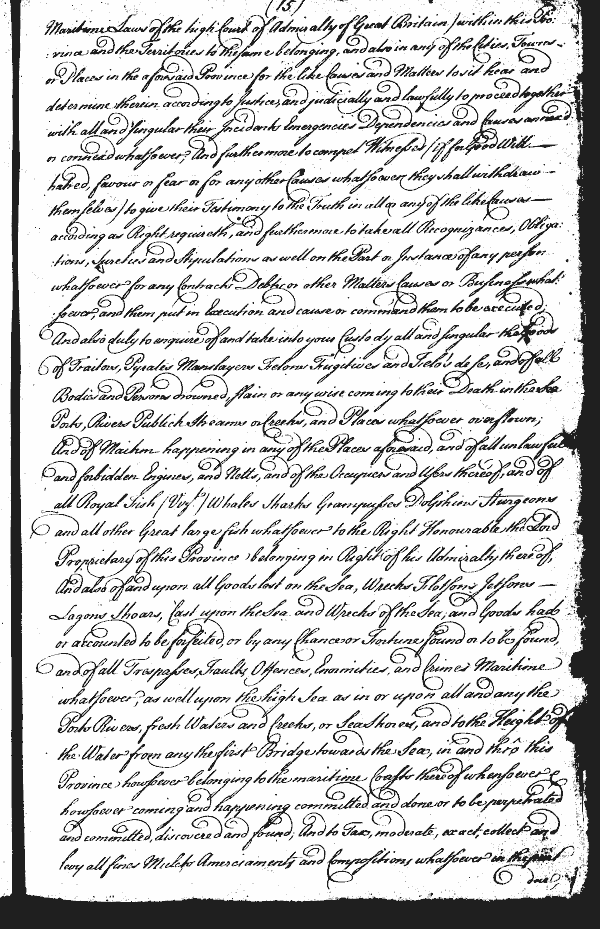 (15)
Maritime Laws of the high Court of Admiralty of Great Britain) within this Pro-
vince and the Territories to the same belonging, and also in any of the Cities, Townes
or Places in the aforesaid Province for the like Causes and Matters to sit hear and
determine therein according to Justice, and judicially and lawfully to proceed together
with all and singular their Incidents Emergencies Dependencies and Causes annexed
or connexed whatsoever; And furthermore to compel Witnesses (if for Good Will
hatred, favour or fear or for any other Causes whatsoever they shall withdraw
themselves) to give their Testimony to the Truth in all or any of the like Causes
according as Right requireth; and furthermore to take all Recognizances, Obliga-
tions, Sureties and Stipulations as well on the Part or Instance of any person
whatsoever for any Contracts Debts or other Matters Causes or Business what-
soever, and them put in Execution and cause or command them to be executed,
And also duly to enquire of and take into your Custody all and singular the Goods
of Traitors, Pyrates Manslayers Felons Fugitives and Felo's de se, and of all
Bodies and Persons drowned, slain or any wise coming to their Death in the Sea
Ports, Rivers Publick Streams or Creeks, and Places whatsoever overflown;
And of Maihm happening in any of the Places aforesaid, and of all unlawful
and forbidden Engines, and Netts, and of the Occupiers and Users thereof, and of
all Royal Fish (Vizt.) Whales Sharks Grampusses Dolphins Sturgeons
and all other Great large fish whatsoever to the Right Honourable the Lord
Proprietary of this Province belonging in Right of his Admiralty thereof,
And also of and upon all Goods lost on the Sea, Wrecks Flotsons Jetsons
Lagons Shoars, Cast upon the Sea and Wrecks of the Sea, and Goods had
or accounted to be forfeited, or by any Chance or Fortune found or to be found,
and of all Trespasses, Faults, Offences, Enormities, and Crimes Maritime
whatsoever, as well upon the high Sea as in or upon all and any the
Ports Rivers, fresh Waters and Creeks, or Sea Shores, and to the Height of
the Water from any the first Bridge towards the Sea, in and thro' this
Province howsoever belonging to the maritime Crafts thereof whensoever &
howsoever coming and happening committed and done or to be perpetrated
and committed, discovered and found; And to Tax, moderate, exact, collect and
levy all fines Mulcts Amerciaments and Compositions whatsoever in the